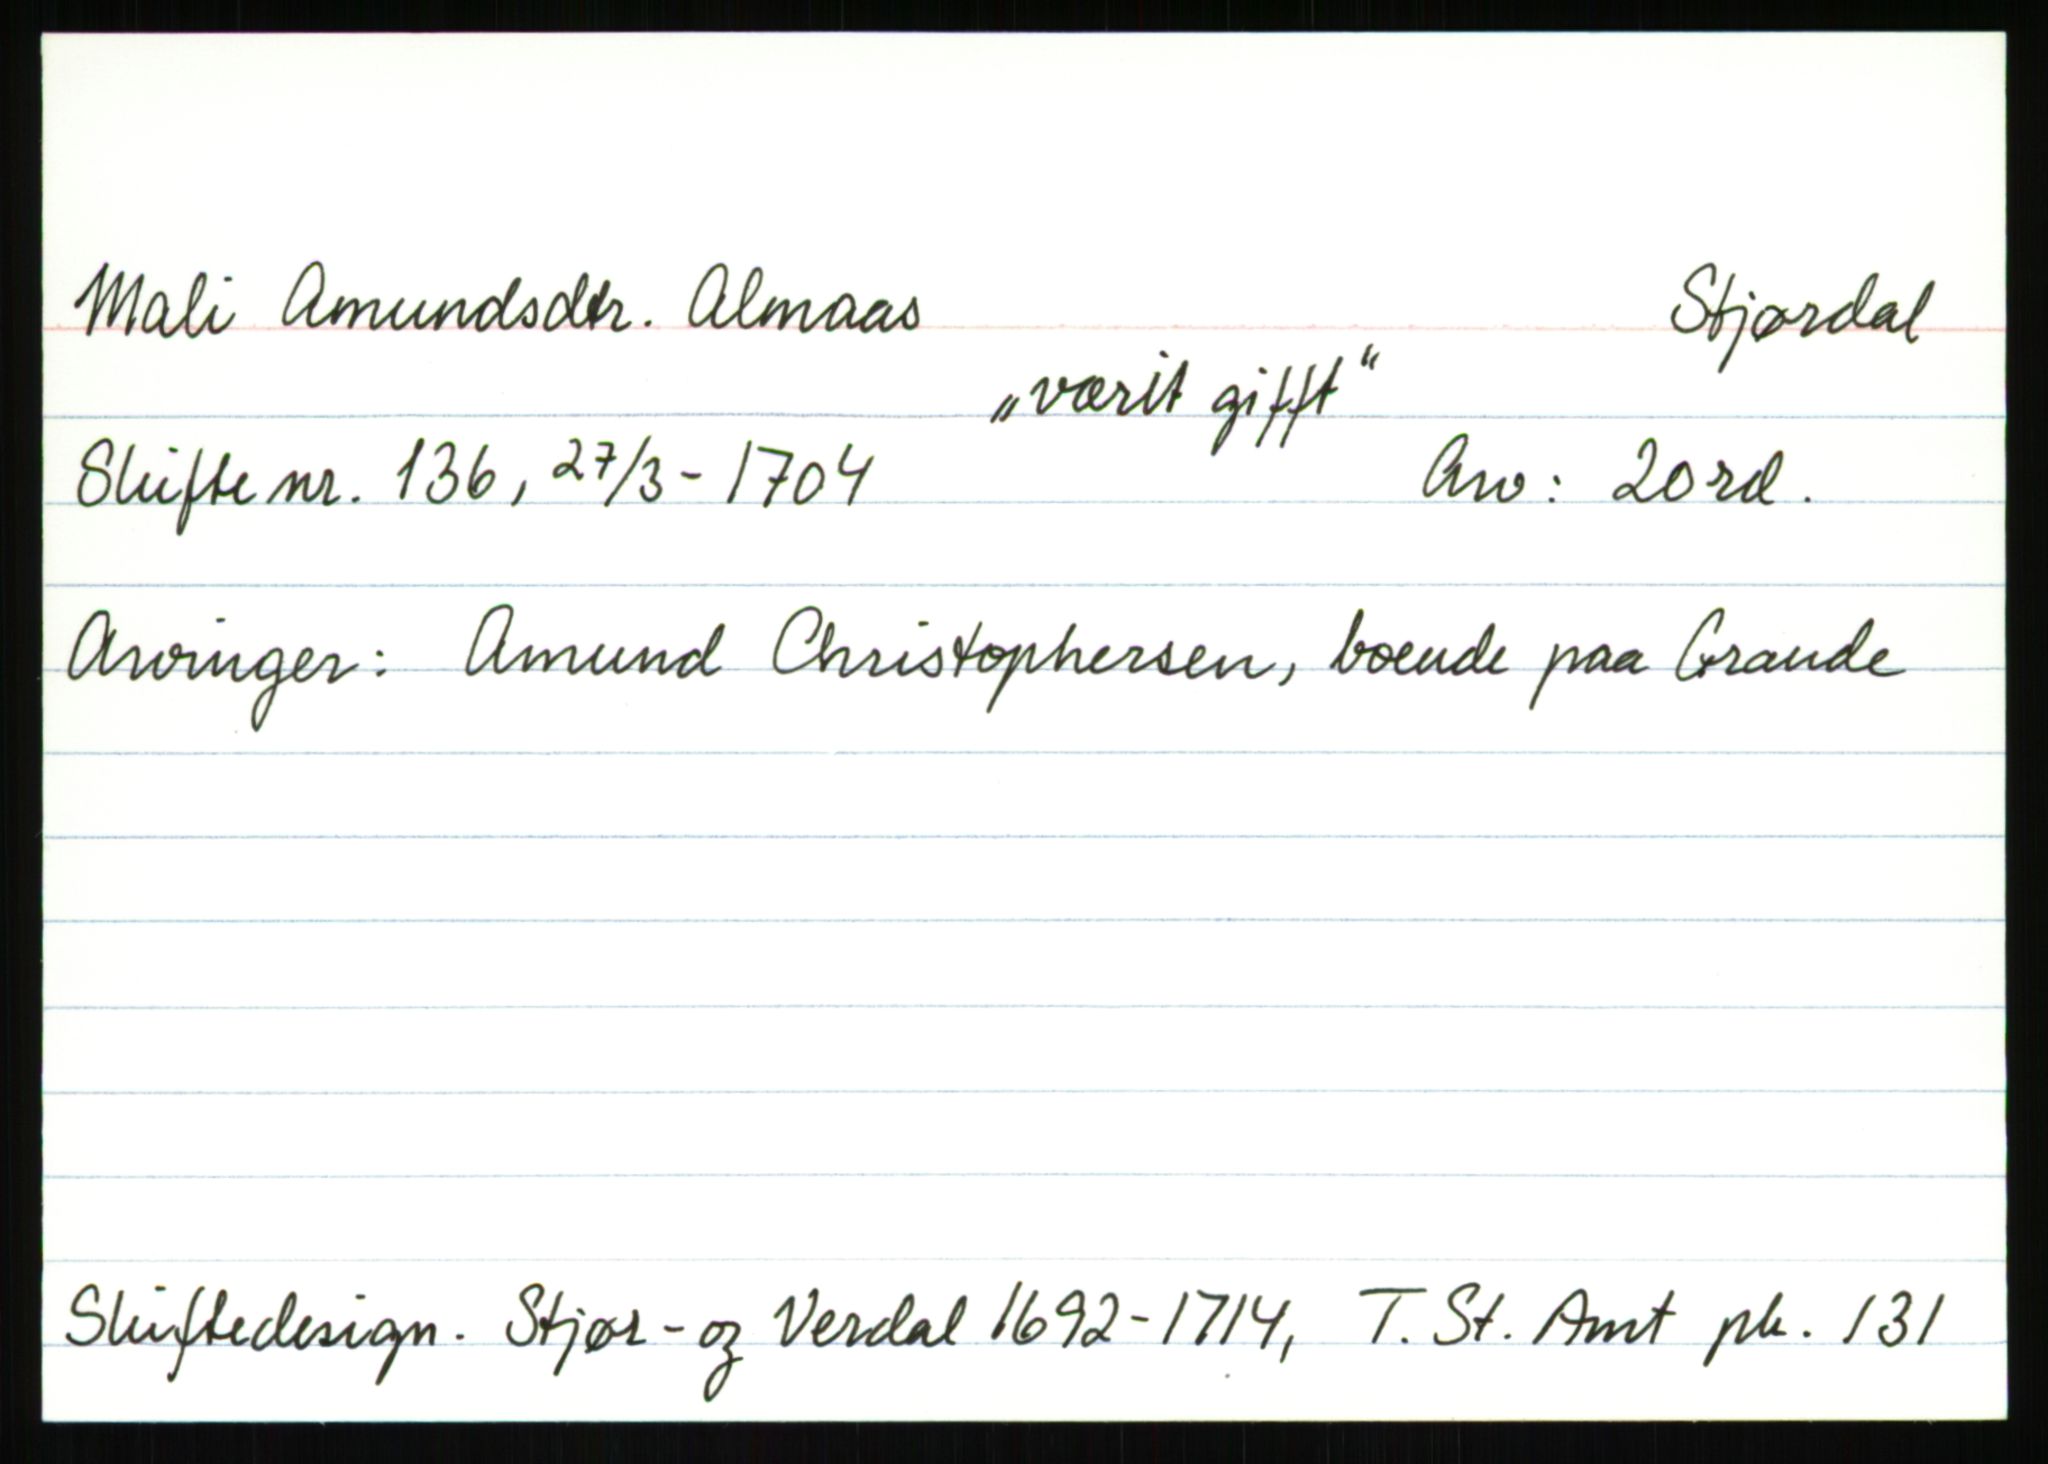 Mali Amundsdtr. Almaas Stjørdal
„værit gifft“
Skifte nr. 136, 27/3 - 1704 Arv: 20 rd.
Arvinger: Amund Christophersen, boende paa Grande
Skiftedesign. Stjør- og Verdal 1692-1714, T. St. Amt pk. 131